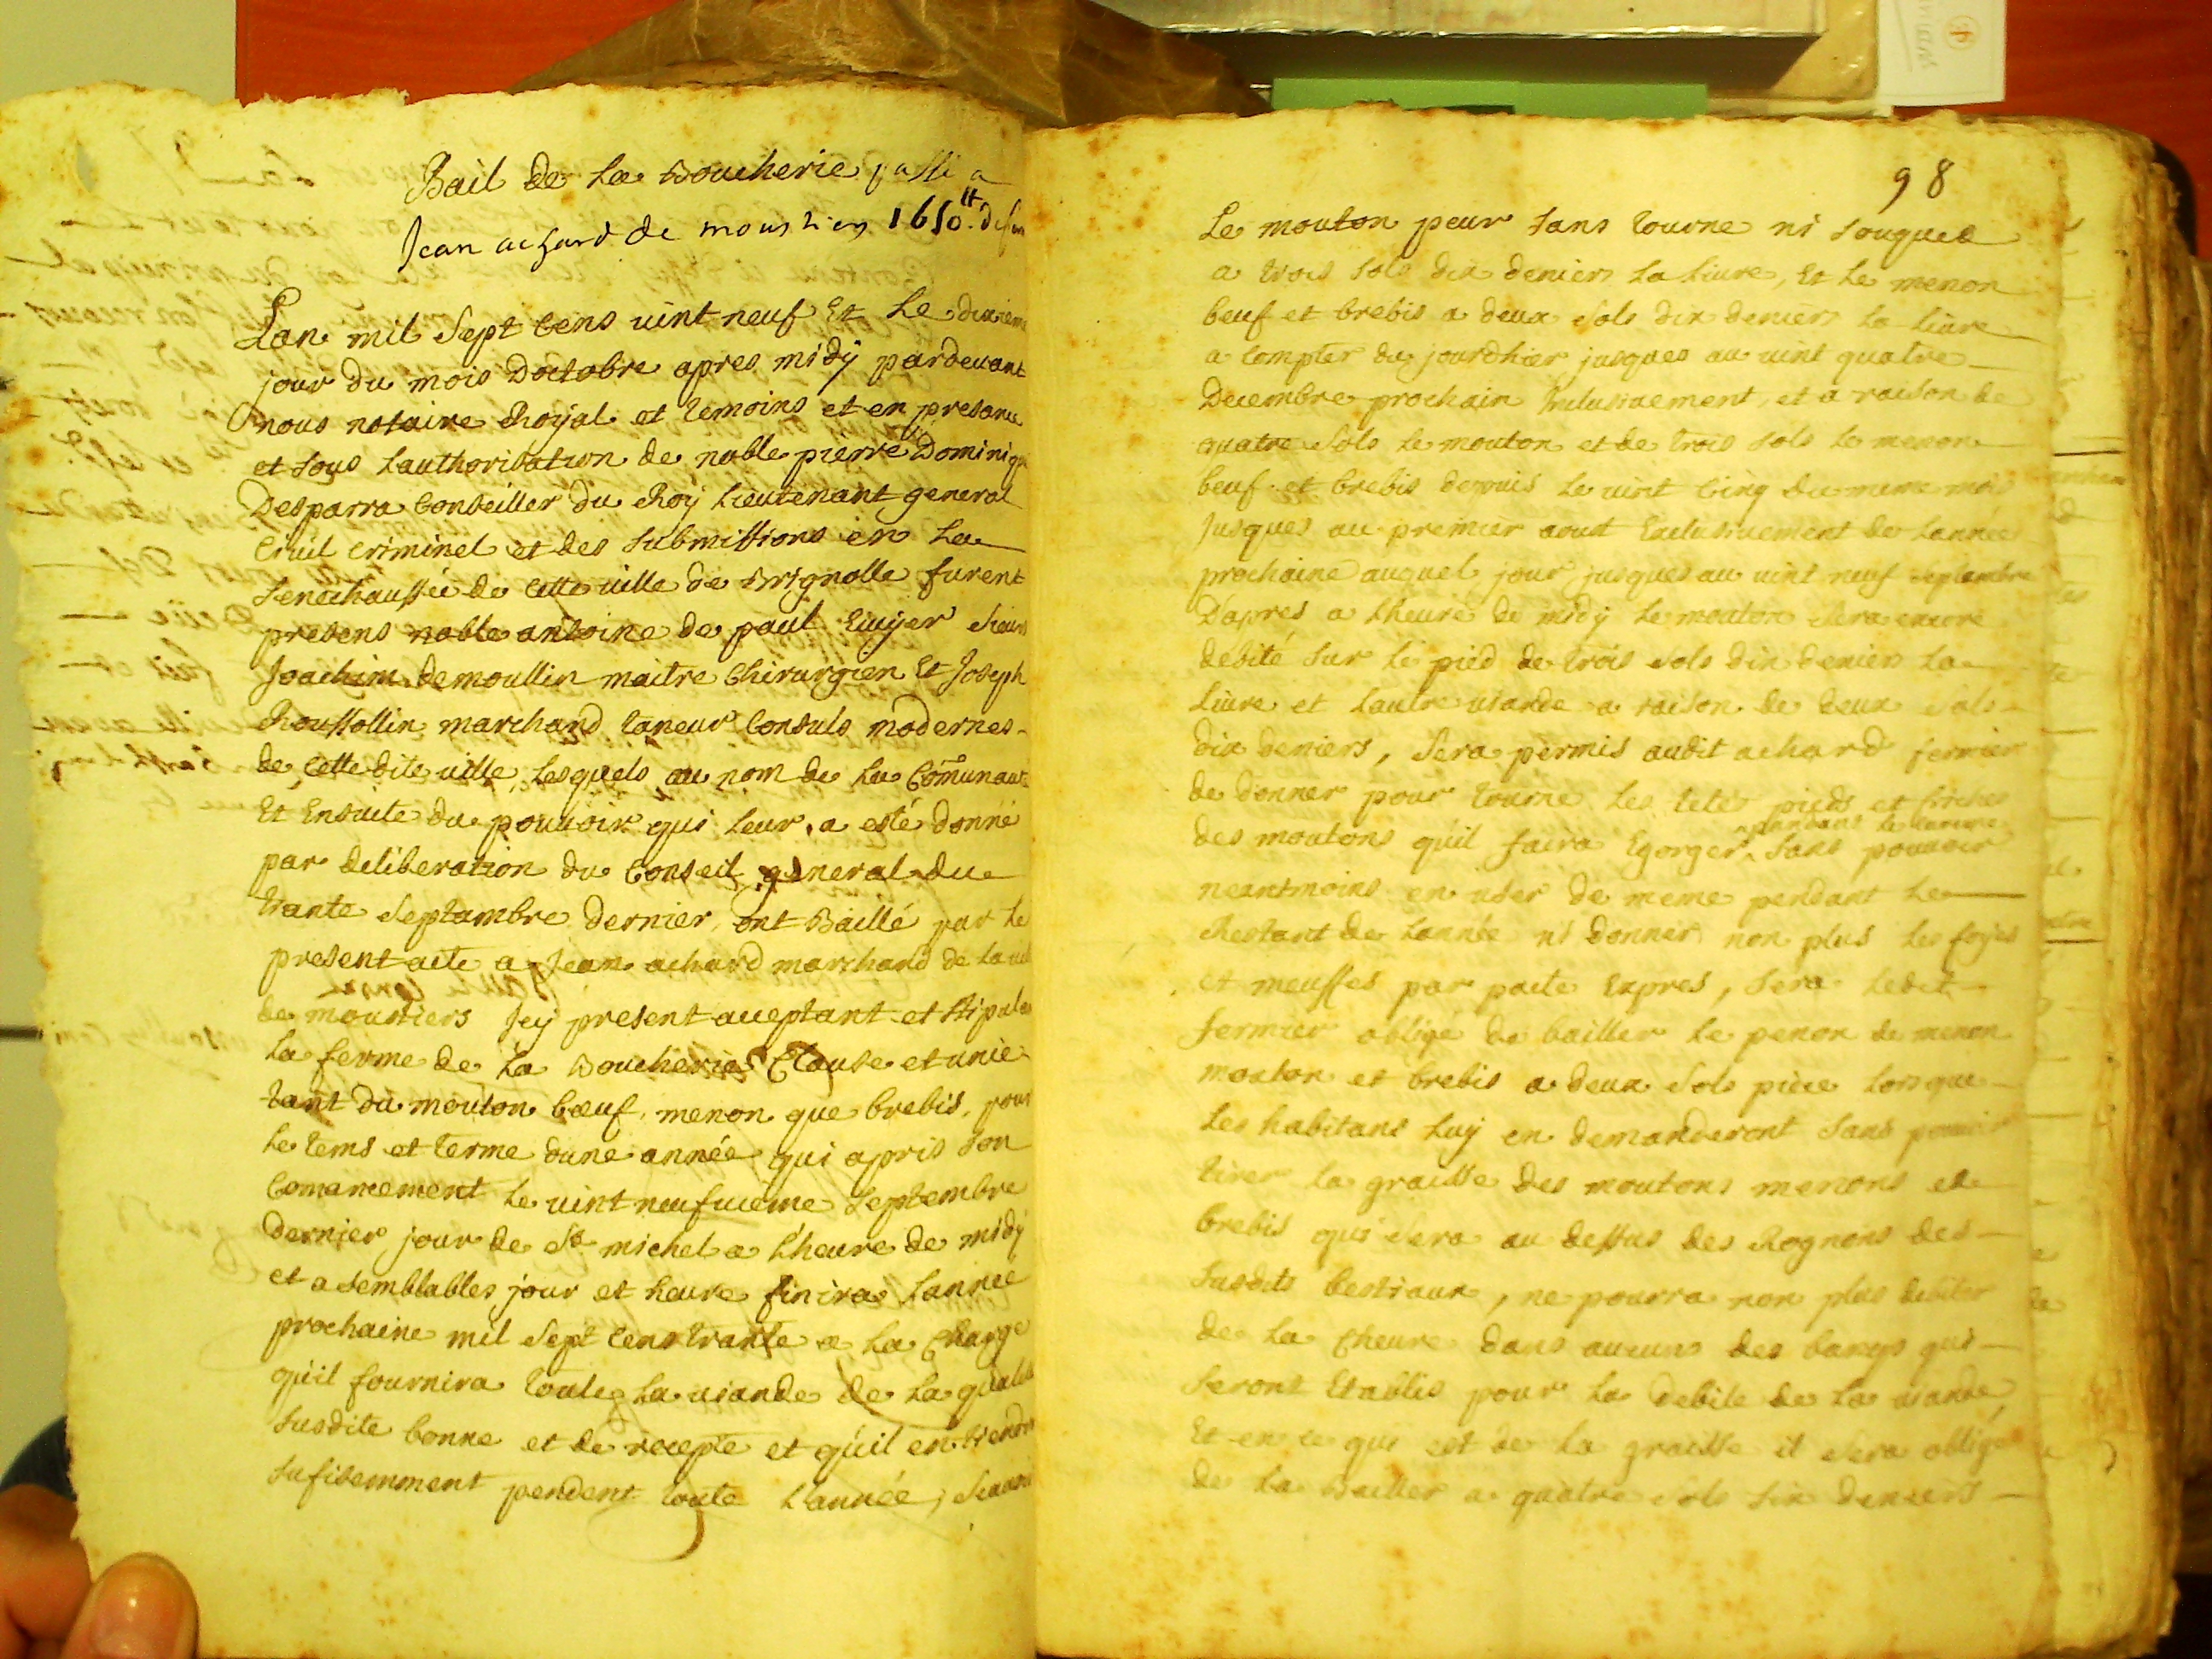 Bail de La Boucherie passé a
Jean achard de moustiers 1650.tt de
Lan mil Sept Cens vint neuf Et Le dixieme
jour du mois Doctobre apres midÿ pardevant
nous notaire Roÿal et temoins et en presance
et sous Lauthorisation de noble pierre Dominique
Desparra Conseiller du Roÿ Lieutenant general
Civil Criminel et des submissions en La
Senechaussée de Cette ville de Brignolle furent
presens noble antoine de paul Ecuÿer Sieurs
Joachim demoullin maitre Chirurgien Et Joseph
Roussollin marchand taneur Consuls modernes
de Cette dite ville, Lesquels au nom de La Comunauté
Et Ensuite du pouvoir qui Leur a esté donné
par deliberation du Conseil general du
trante Septambre dernier, ont Baillé par Le
present acte a Jean achard marchand de La ville
de moustiers Icÿ present acceptant et stipulant
La ferme de La Boucherie Clause et unie
tant du mouton bœuf, menon que brebis, pour
Le tems et terme dune année qui a pris son
Comancement Le vint neufvieme Septembre
dernier jour de St michel a L'heure de midÿ
et a semblables jour et heure finira Lannée
prochaine mil Sept Cens trante a La Charge
qu'il fournira toute La viande de La qualité
susdite bonne et de recepte et qu'il en tiendra
sufisemment pendent toute L'année, Scavoir
98
Le mouton pour sans tourne ni souquet
a trois sols dix deniers La Livre, Et Le menon
beuf et brebis a deux sols dix deniers La Livre
a Compter du jourdhier jusques au vint quatre
Decembre prochain Inclusivement, et a raison de
quatre sols Le mouton et de trois sols Le menon
beuf et brebis depuis Le vint Cinq du meme mois
Jusques au premier aoust Exclusivement de Lannée
prochaine auquel jour jusques au vint neuf Septambre
D'apres a L'heure de midÿ Le mouton Sera encore
debité sur Le pied de trois sols dix deniers La
Livre et Lautre viande a raison de deux sols
dix deniers, Sera permis audit achard fermier
de donner pour tourne Les tete pieds et
des moutons qu'il faira Egorger sans pouvoir
pandant Le Careme
neantmoins en user de meme pendant Le
Restant de Lannée ni donner non plus Les foyes
et meusses par pacte Expres, Sera Ledit
fermier obligé de bailler Le penon de menon
mouton et brebis a deux sols piece Lorsque
Les habitans Luÿ en demanderont sans pouvoir
tirer La graisse des moutons menons et
brebis qui sera au dessus des Rognons des
susdits bestiaux, ne pourra non plus debiter
de La Chevre dans aucuns des bancqs qui
seront Etablis pour La debite de La viande,
Et en ce qui est de La graisse il Sera obligé
de La Bailler a quatre sols six deniers